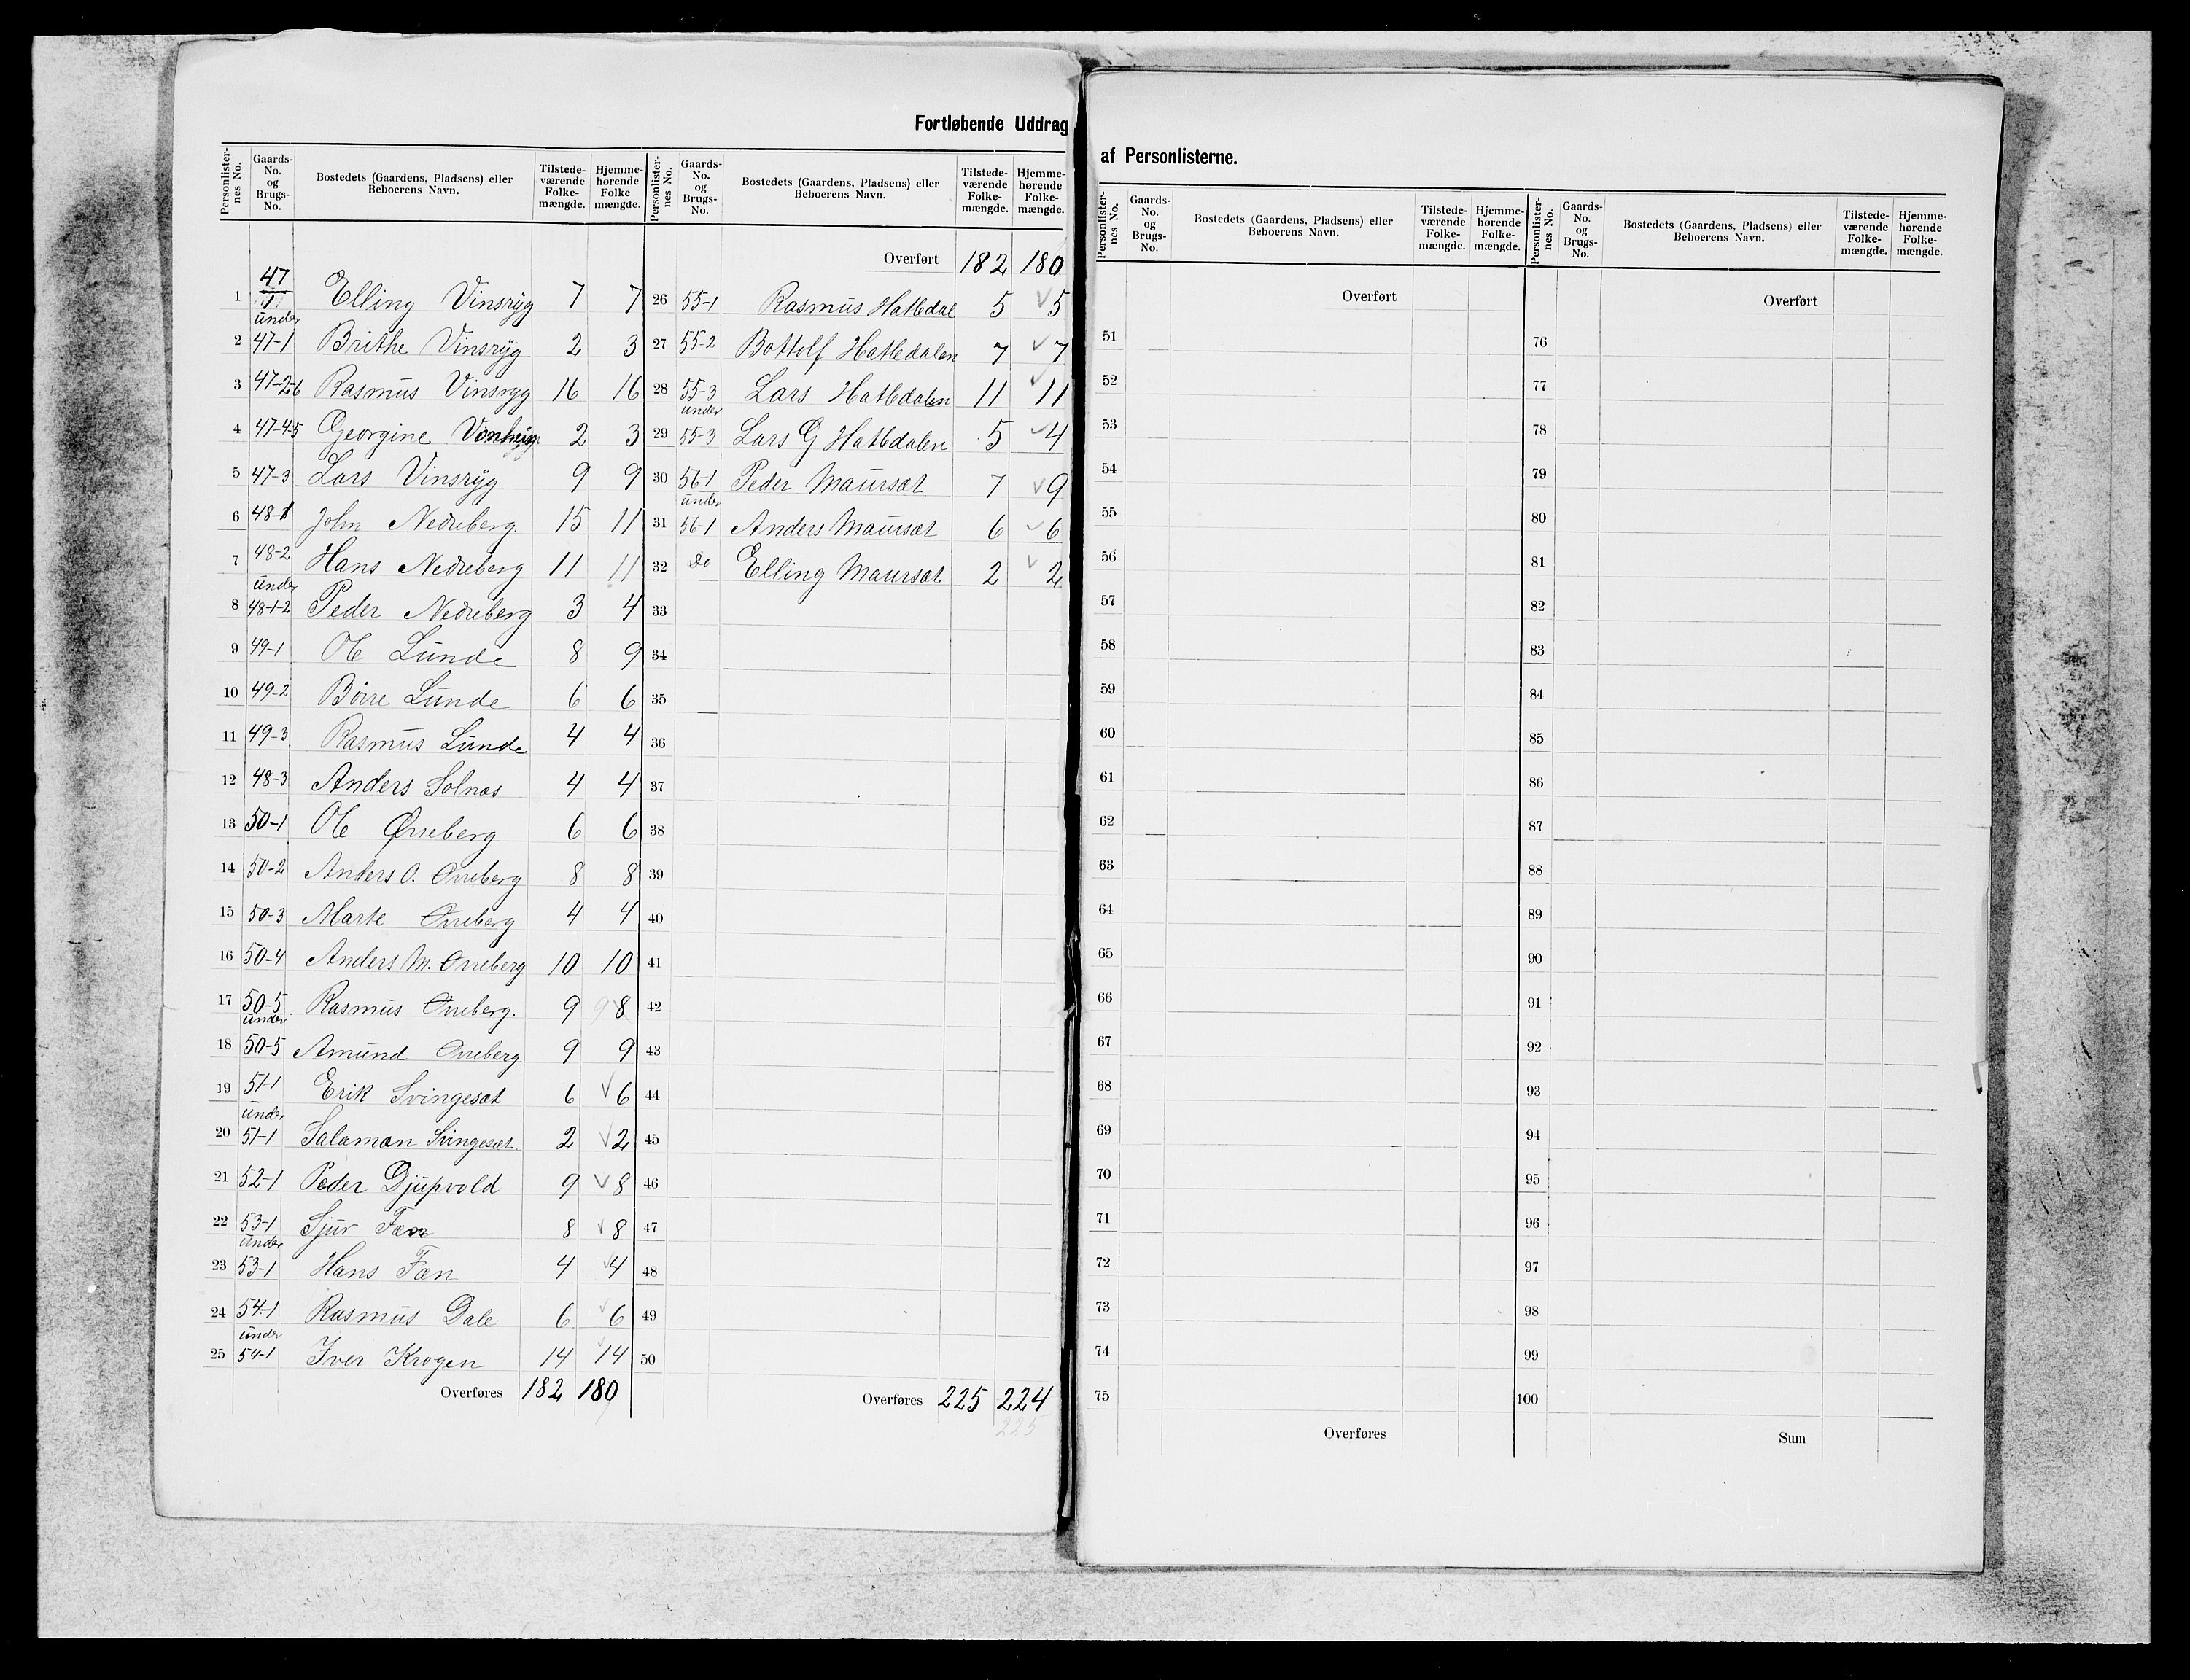 Fortløbende Uddrag af Personlisterne.
Personlister-nes No. | Gaards-No. og Brugs-No. | Bostedets (Gaardens, Pladsens) eller Beboerens Navn. | Tilstede-værende Folke-mængde. | Hjemme-hørende Folke mængde.
1 47/1 Elling Vinsryg 7 7
2 under 47-1 Brithe Vinsryg 2 3
3 47-2-6 Rasmus Vinsryg 16 16
4 47-4-5 Georgine 2 3
5 47-3 Lars Vinsryg 9 9
6 48-1 John Nedreberg 15 11
7 48-2 Hans Nedreberg 11 11
8 under 48-1-2 Peder Nedreberg 3 4
9 49-1 Ole Lunde 8 9
10 49-2 Børre Lunde 6 6
11 49-3 Rasmus Lunde 4 4
12 48-3 Anders Solnæs 4 4
13 50-1 Ole Øvreberg 6 6
14 50-2 Anders O. Øvreberg 8 8
15 50-3 Marte Øvreberg 4 4
16 50-4 Anders M. Øvreberg 10 10
17 50-5 Rasmus Øvreberg. 9 9 8
18 under 50-5 Amund Øvreberg 9 9
19 51-1 Erik Svingesæt 6 √ 6
20 under 51-1 Salaman Svingesæt 2 √ 2
21 52-1 Peder Djupvold 9 √ 8
22 53-1 Sjur Fæn 8 √ 8
23 under 53-1 Hans Fæn 4 √ 4
24 54-1 Rasmus Dale 6 √ 6
25 under 54-1 Iver Krogen 14 √ 14
Overføres 182 180
Personlister-nes No. | Gaards-No. og Brugs-No. | Bostedets (Gaardens, Pladsens) eller Beboerens Navn. | Tilstede-værende Folke-mængde. | Hjemme-hørende Folke-mængde.
Overført 182 180
26 55-1 Rasmus Hatledal 5 √ 5
27 55-2 Bottolf Hatledalen 7 √ 7
28 55-3 Lars Hatledalen 11 √ 11
29 under 55-3 Lars G Hatledalen 5 √ 4
30 56-1 Peder Maursæt 7 √ 9
31 under 56-1 Anders Maursæt 6 √ 6
32 Do Elling Maursæt 2 √ 2
33
34
35
36
37
38
39
40
41
42
43
44
45
46
47
48
49
50
Overføres 225 224
225
Personlister-nes No. | Gaards-No. og Brugs-No. | Bostedets (Gaardens, Pladsens) eller Beboerens Navn. | Tilstede-værende Folke-mængde. | Hjemme-hørende Folke-mængde.
Overført
51
52
53
54
55
56
57
58
59
60
61
62
63
64
65
66
67
68
69
70
71
72
73
74
75
Overføres
Personlister-nes No. | Gaards-No. og Brugs-No. | Bostedets (Gaardens, Pladsens) eller Beboerens Navn. | Tilstede-værende Folke-mængde. | Hjemme-hørende Folke-mængde.
Overført
76
77
78
79
80
81
82
83
84
85
86
87
88
89
90
91
92
93
94
95
96
97
98
99
100
Sum